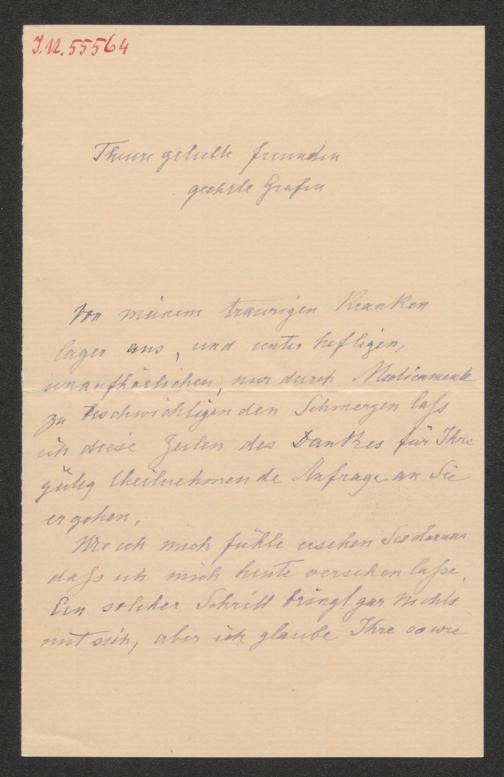 I.N. 55564
Theure geliebte Freundin
geehrte Gräfin
Von meinem traurigen Kranken
lager aus, und unter heftigen,
unaufhörlichen, nur durch Medicamente
zu beschwichtigenden Schmerzen lass
ich diese Zeilen des Dankes für Ihre
gütig theilnehmende Anfrage an Sie
ergehen.
Wie ich mich fühle ersehen Sie daraus
dass ich mich heute versehen lasse.
Ein solcher Schritt bringt gar nichts
mit sich, aber ich glaube Ihre sowie